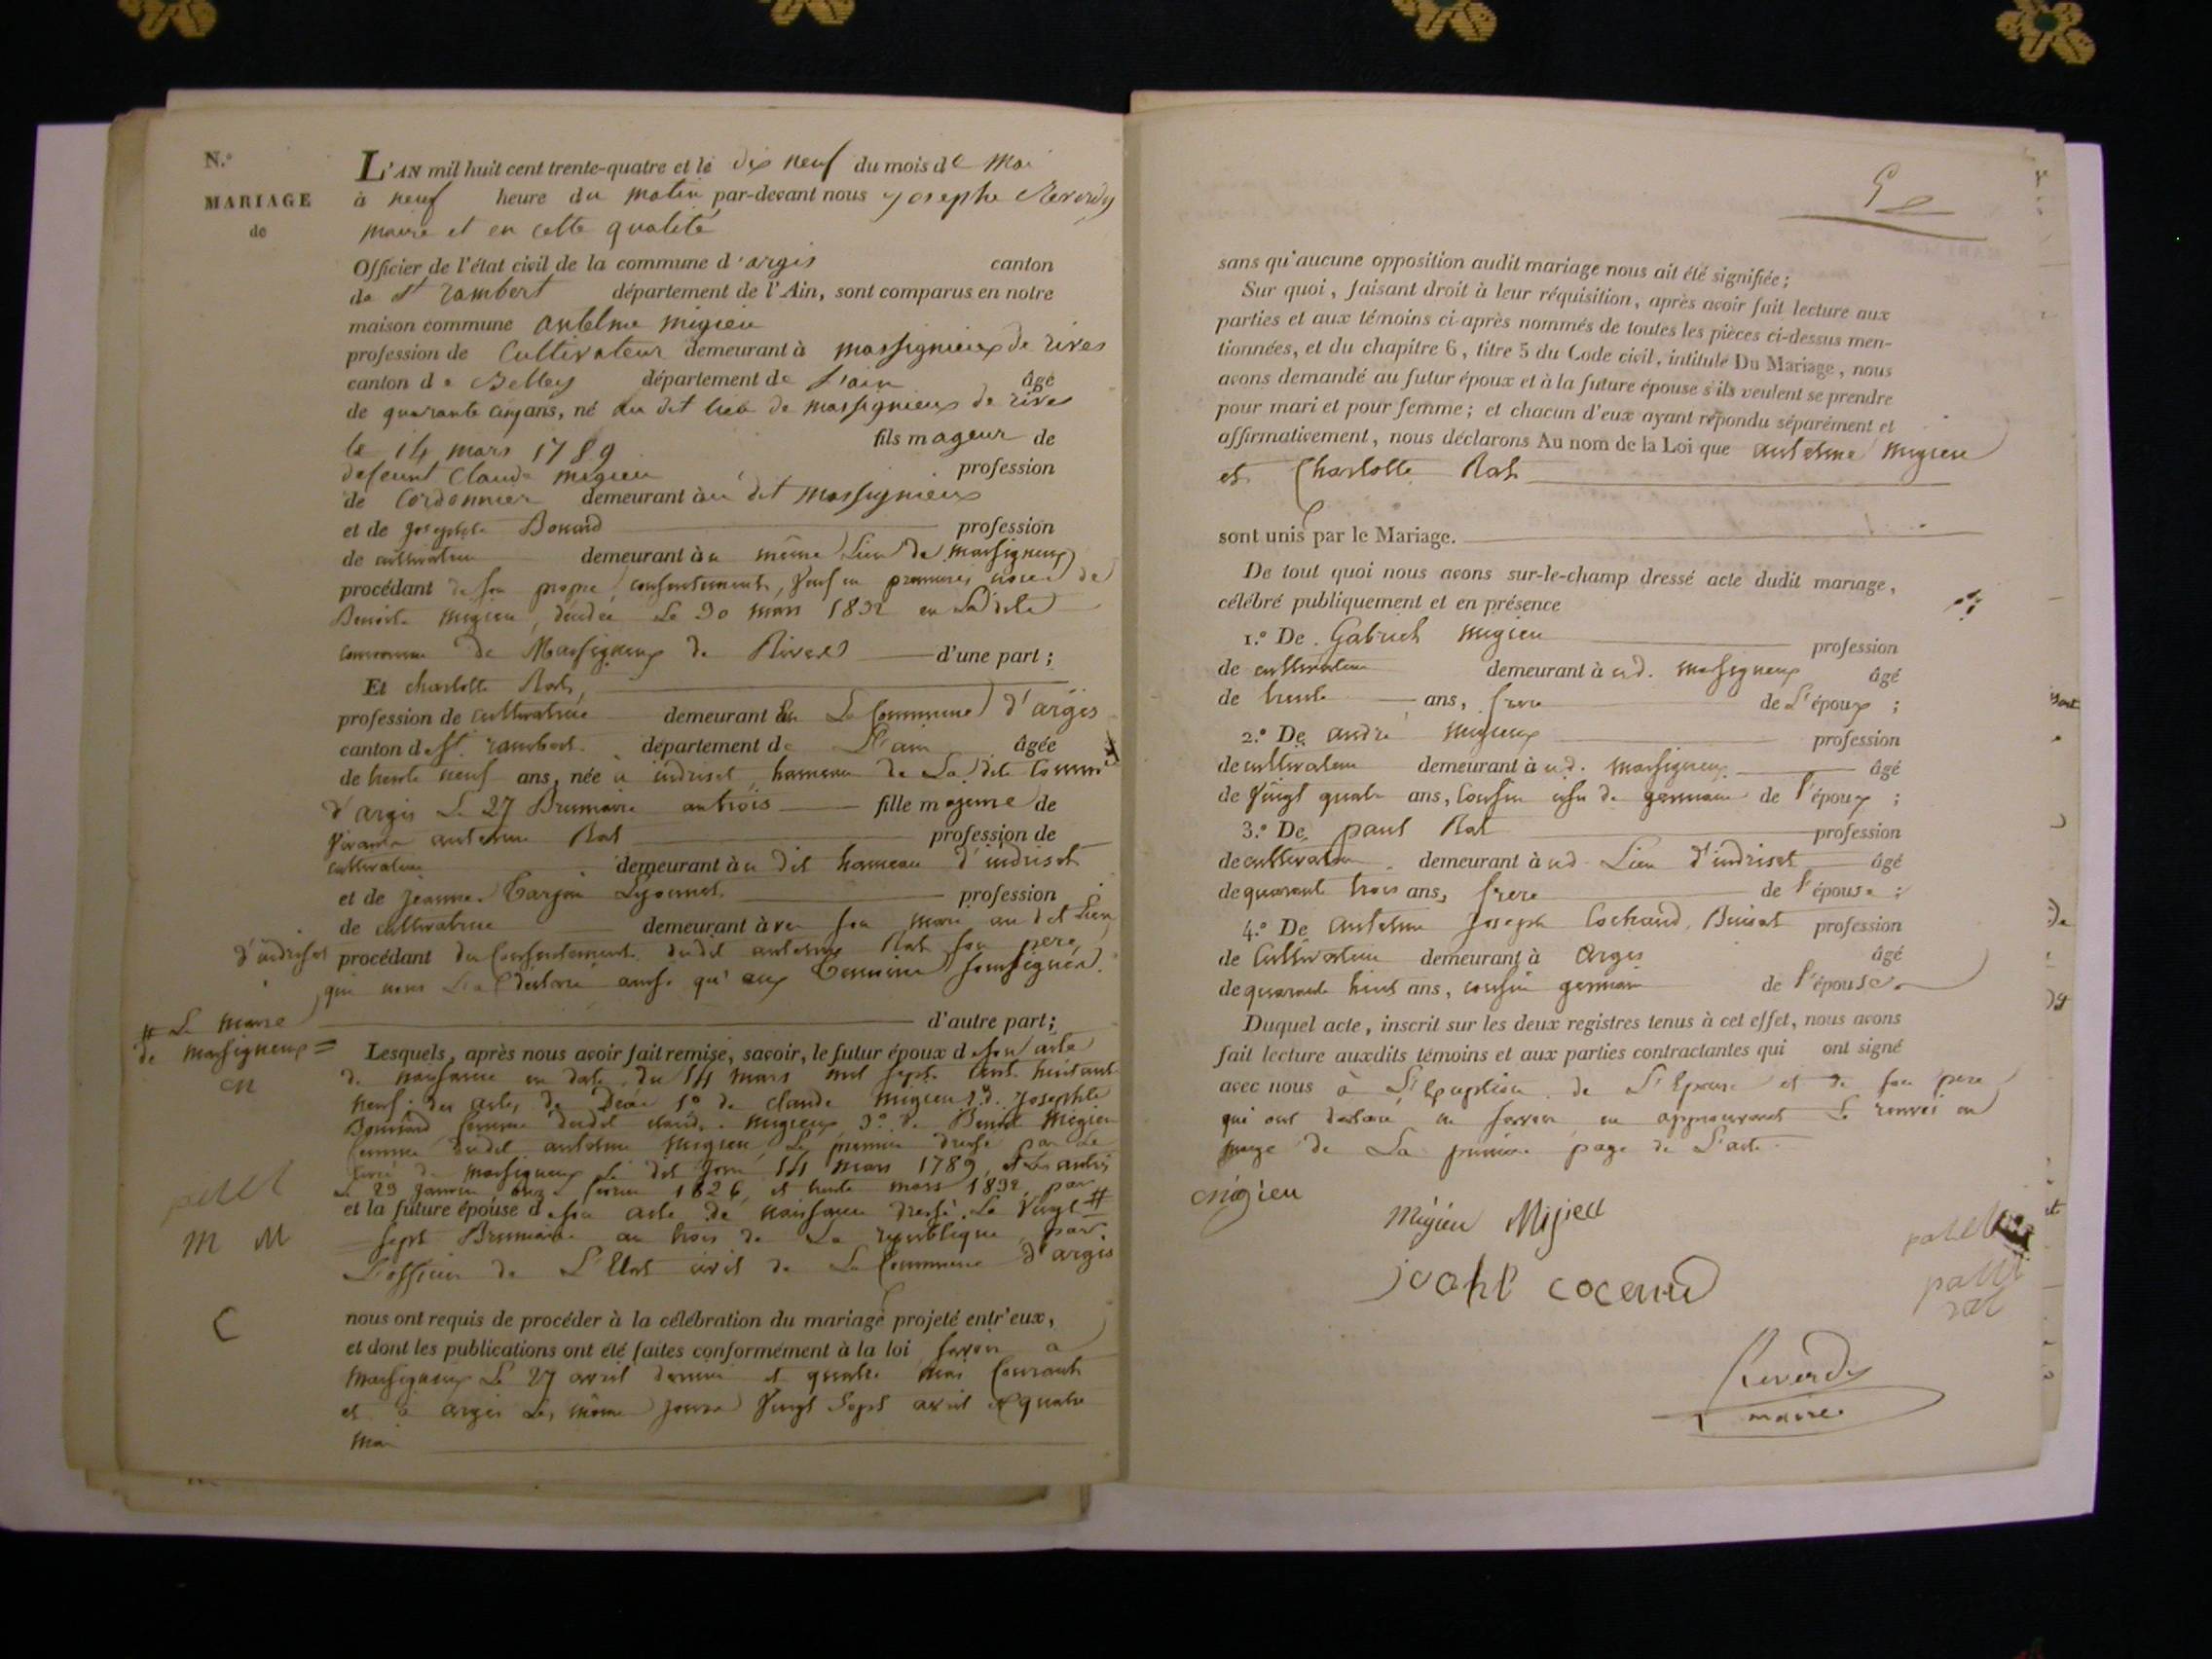 N.°
MARIAGE
de
L'AN mil huit cent trente-quatre et le dix neuf du mois de Mai
à neuf heure du matin par-devant nous josephe Reverdy
maire et en cette qualité
Officier de l'état civil de la commune d'argis canton
de St rambert département de l'Ain, sont comparus en notre
maison commune antelme migieu
profession de Cultivateur demeurant à massignieux de rives
canton de Belley département de L'ain âgé
de quarante cinq ans, né au dit lieu de massignieux de rives
le 14 mars 1789 fils mageur de
defeunt Claude migieu profession
de Cordonnier demeurant au dit massignieux
et de josephte Bonnard profession
de cultivateur demeurant au même Lieu de massigneux
procédant de son propre consentement, veuf en premieres noces de
Benoite migieu, décédée Le 30 mars 1832 en Ladite
commune de Massigneux de Rives d'une part ;
Et charlotte Rat,
profession de cultivatrice demeurant en La Commune d'argis
canton de St. rambert département de L'ain âgée
de trente neuf ans, née à indriset, hameau de La dite Commune
d'argis Le 27 Brumaire an trois fille majeure de
vivant antelme Rat profession de
cultivateur demeurant au dit hameau d'indriset
et de jeanne profession
de cultivatrice demeurant avec son mari au dit Lieu
d'indriset procédant du Consentement dudit antelme Rat son pere,
qui nous L'a déclaré ainsi qu'aux temoins soussignés.
d'autre part ;
# Le maire
de massigneux =
Lesquels, après nous avoir fait remise, savoir, le futur époux de son acte
de naissance en date du 14 mars mil sept cent huitante
neuf : des actes de Décès 1° de claude migieu 2° d. josephte
Bonnard femme dudit claude migieux 3° de Benoite Migieu
femme dudit antelme migieu, Le premier dressé par Le
curé de massigneux Le dit jour 14 mars 1789, et Les autres
Le 29 janvier, onze fevrier 1826, et trente mars 1832, par #
et la future épouse de son acte de naissance dressé Le Vingt
sept Brumaire an trois de La republique par
L'officier de L'Etat civil de La Commune d'argis
petet
m M
C
nous ont requis de procéder à la célébration du mariage projeté entr'eux,
et dont les publications ont été faites conformément à la loi savoir a
Massigneux Le 27 avril dernier et quatre mai Courant
et a argis Les même jours Vingt Sept avril et quatre
mai
sans qu'aucune opposition audit mariage nous ait été signifiée ;
Sur quoi, faisant droit à leur réquisition, après avoir fait lecture aux
parties et aux témoins ci-après nommés de toutes les pièces ci-dessus men-
tionnées, et du chapitre 6, titre 5 du Code civil, intitulé Du Mariage, nous
avons demandé au futur époux et à la future épouse s'ils veulent se prendre
pour mari et pour femme ; et chacun d'eux ayant répondu séparément et
affirmativement, nous déclarons Au nom de la Loi que antelme Migieu
et Charlotte Rat
sont unis par le Mariage.
De tout quoi nous avons sur-le-champ dressé acte dudit mariage,
célébré publiquement et en présence
1.° De Gabriel migieu profession
de cultivateur demeurant à ud. massigneux âgé
de trente ans, frere de L'époux ;
2.° De andré migieux profession
de cultivateur demeurant à ud. massigneux âgé
de Vingt quatre ans, Cousin issu de germain de l'époux ;
3.° De paul Rat profession
de cultivateur demeurant à ud. Lieu d'indriset âgé
de quarante trois ans, frere de l'épouse ;
4.° De antelme joseph Cochand profession
de Cultivateur demeurant à argis âgé
de quarante huit ans, cousin germain de l'épouse.
Duquel acte, inscrit sur les deux registres tenus à cet effet, nous avons
fait lecture auxdits témoins et aux parties contractantes qui ont signé
avec nous à L'Exeption de L'Epouse et de son pere
qui ont declaré ne savoir en approuvant Le renvoi en
marge de La premiere page de L'acte.
migieu
Migieu Migieu
patet
Reverdy
maire